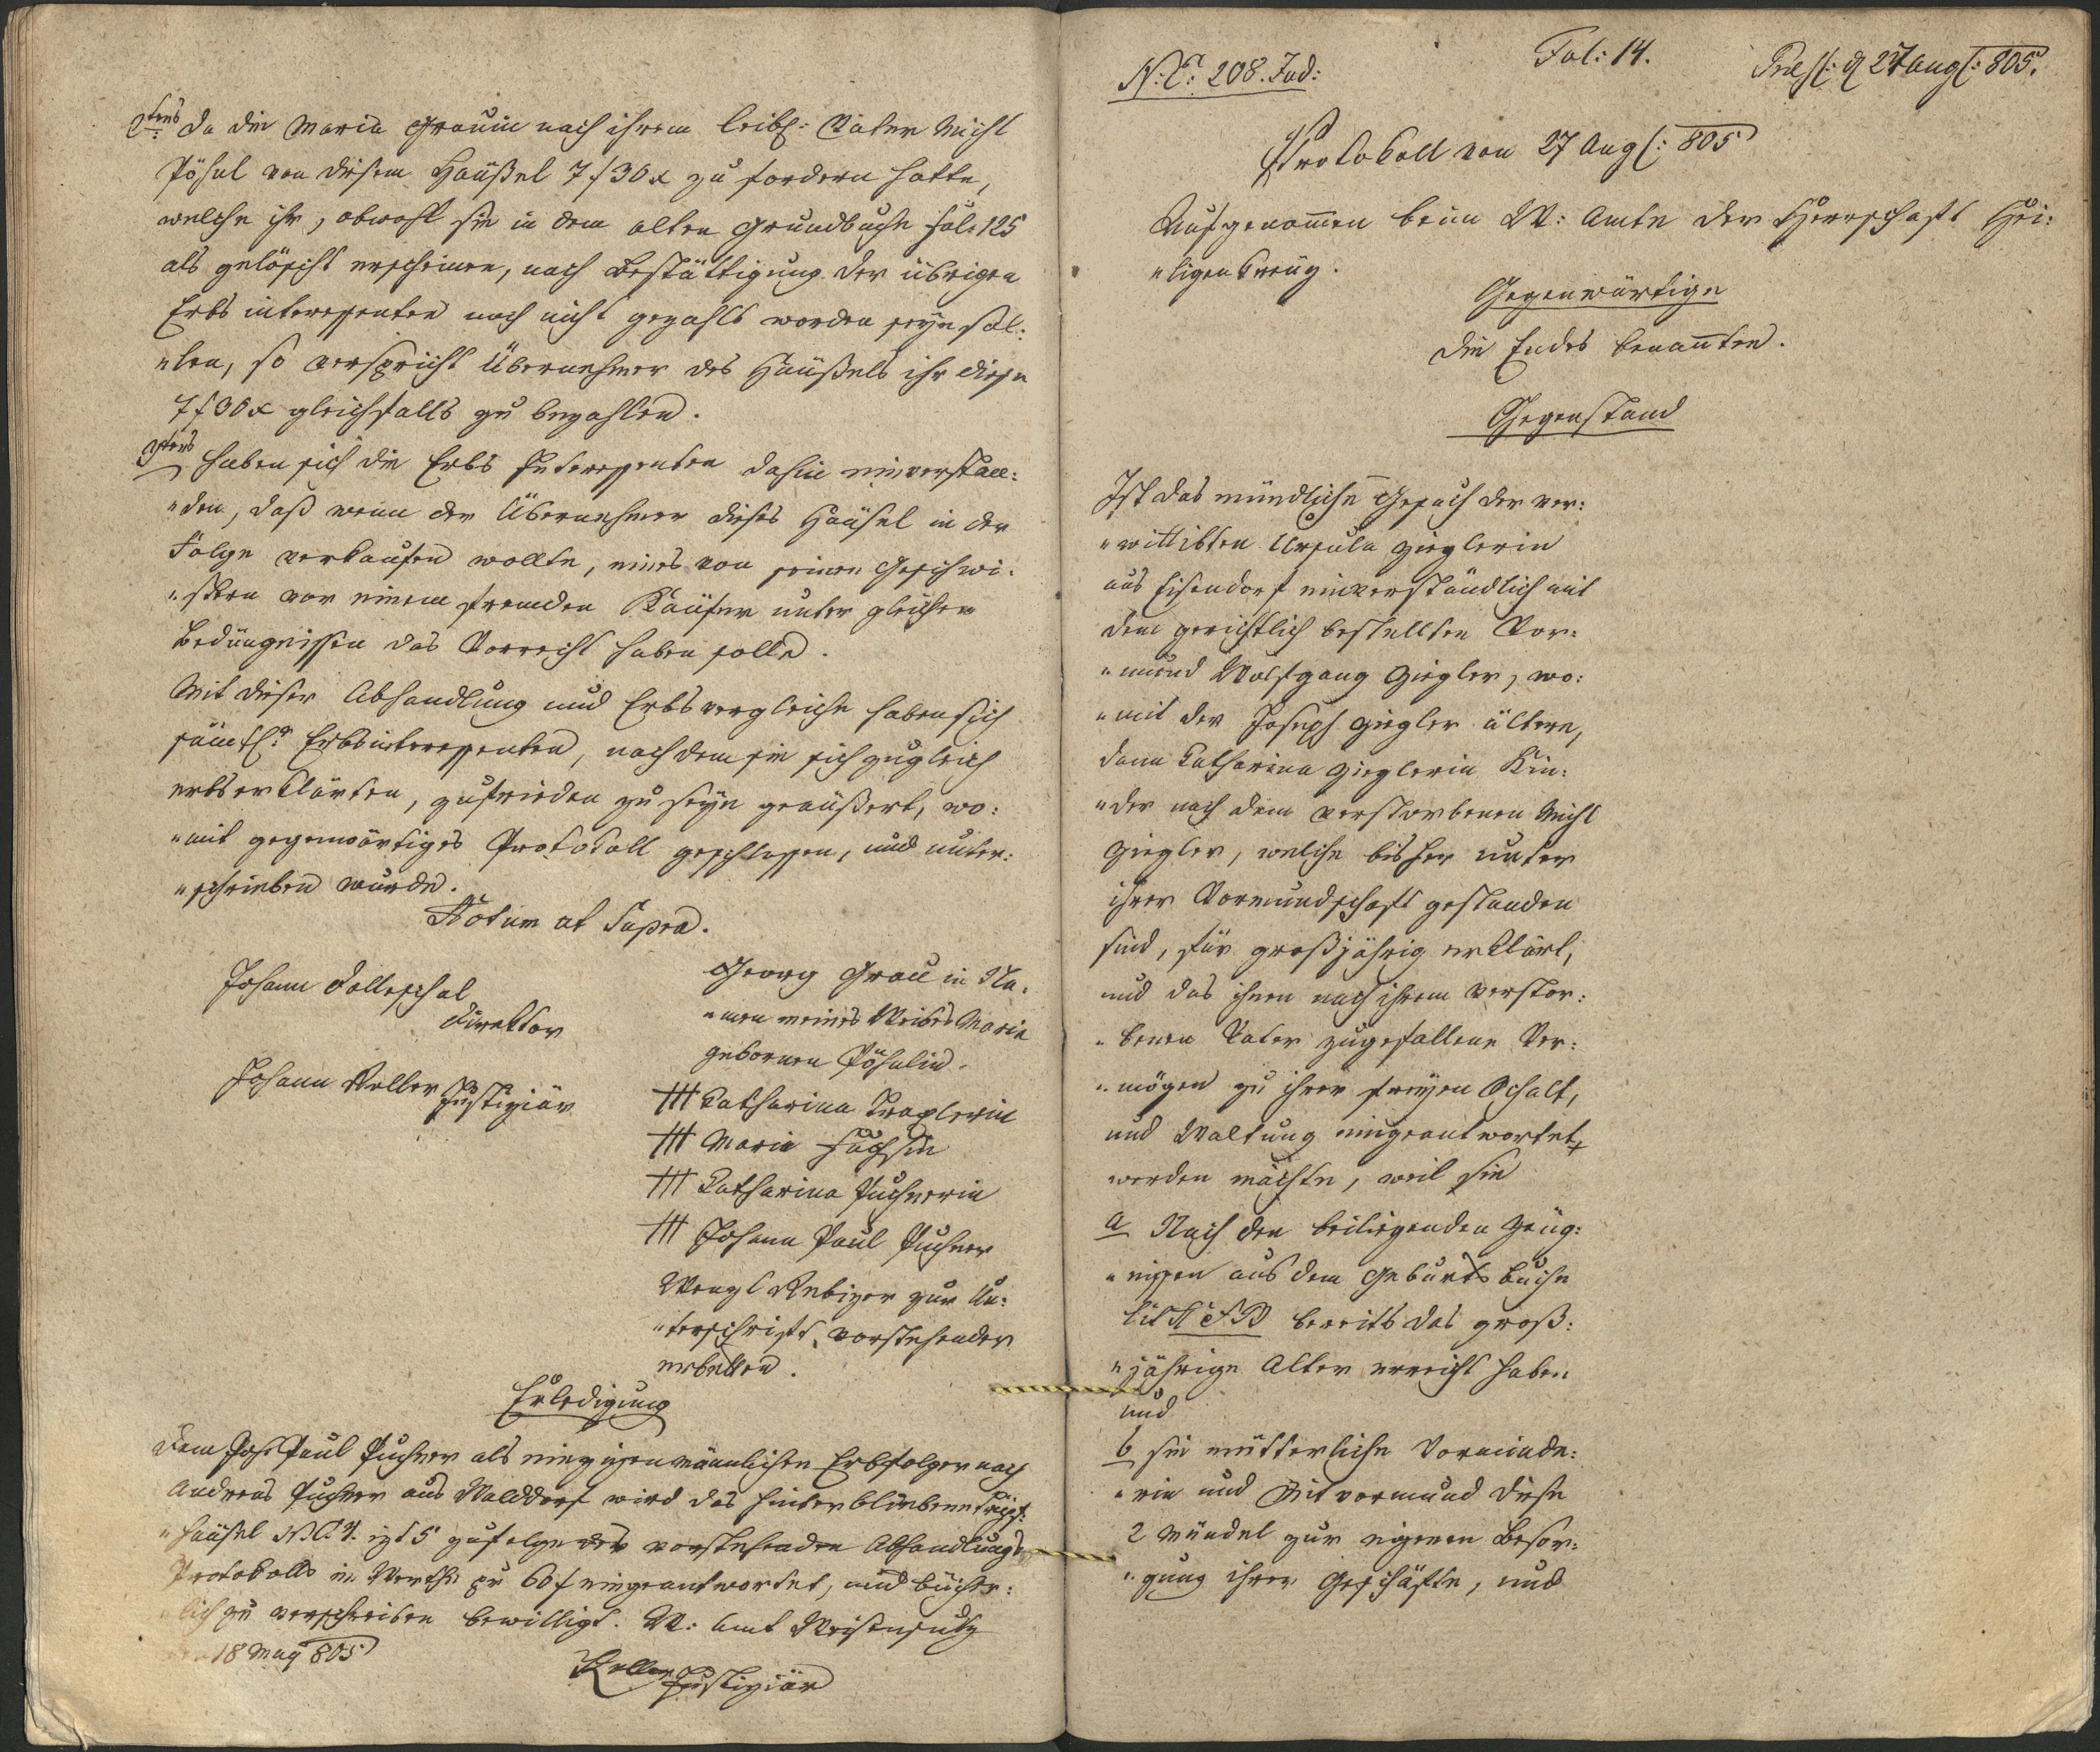 2tens da die Maria Grauin nach ihrem leibl: Vater Michl
Pöhsel von diesem Häußel 7 f 30 x zu fordern hatte,
welche ihr, obwohl sie in dem alten Grundbuche fol: 125
als gelöscht erscheinen, nach Bestättigung der übrigen
Erbs interessenten noch nicht gezahlt worden seyn sol:
"len, so verspricht Übernehmer des Häußels ihr diese
7 f 30 x gleichfalls zu bezahlen.
3tens haben sich die Erbs Interessenten dahin einverstan:
"den, daß wenn der Übernehmer dieses Häusel in der
Folge verkaufen wollte, eines von seinen Geschwi:
"stern vor einem fremden Käufer unter gleichen
Bedüngnissen das Vorrecht haben solle.
Mit dieser Abhandlung und Erbsvergleiche haben sich
sämtl: Erbsinteressenten, nachdem sie sich zugleich
erbserklärten, zufrieden zu seyn geäußert, wo:
"mit gegenwärtiges Protokoll geschlossen, und unter:
"schrieben wurde.
Actum ut Supra.
Johann Dolleschal
Direktor
Johann Keller Justiziär
Georg Grau in Na:
"men meines Weibes Maria
gebornen Pöhslin.
+++ Catharina Traxlerin
+++ Maria Fuchsin
+++ Catharina Puchnerin
+++ Johann Paul Puchner
Wenzl Rebizer zur Un:
"terschrift vorstehender
erbetten.
Erledigung
Dem Joh: Paul Puchner als einzigen männlichen Erbfolger nach
Andreas Puchner aus Walddorf wird das hinterbliebene
"häusel N: C: 4. izt 5 zufolge des vorstehenden Abhandlungs
Protokolls im Werthe zu 60 f eingeantwortet, und bücher:
"lich zu verschreiben bewilligt. W: Amt Weißensulz
18 May 805
Keller Justiziär
N: E: 208. Jud:
Fol: 14.
Præs: d 27 Aug: 805.
Protokoll von 27 Aug: 805
Aufgenommen beim W: Amte der Herrschaft Hei:
"ligenkreuz.
Gegenwärtige
Die Endes benannten.
Gegenstand
Ist das mündliche Gesuch der ver:
"wittibten Ursula Zieglerin
aus Eisendorf einverständlich mit
dem gerichtlich bestellten Vor:
"mund Wolfgang Ziegler, wo:
"mit der Joseph Ziegler ältere,
dann Catharina Zieglerin Kin:
"der nach dem verstorbenen Michl
Ziegler, welche bisher unter
ihrer Vormundschaft gestanden
sind, für großjährig erklärt,
und das ihnen nach ihrem verstor:
"benen Vater zugefallene Ver:
"mögen zu ihrer freyen Schalt,
und Waltung eingeantwortet
werden möchte, weil sie
a Nach den beiliegenden Zeug:
"nissen aus dem Geburts buche
Lit A et B bereits das groß:
"jährige Alter erreicht haben
und
b sie mütterliche Vormünde:
"rin und Mitvormund diese
2 Mündel zur eigenen Besor:
"gung ihrer Geschäfte, und